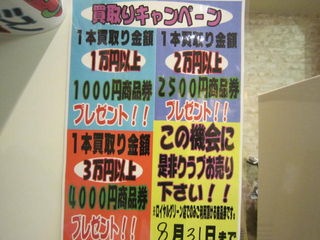 買取りキャンペーン
1本買取り金額
1万円以上
1000円商品券
プレゼント!!
1本買取り金額
2万円以上
2500円商品券
プレゼント!!
1本買取り金額
3万円以上
4000円商品券
プレゼント!!
この機会に
是非クラブお売り
下さい!!
8月31日まで